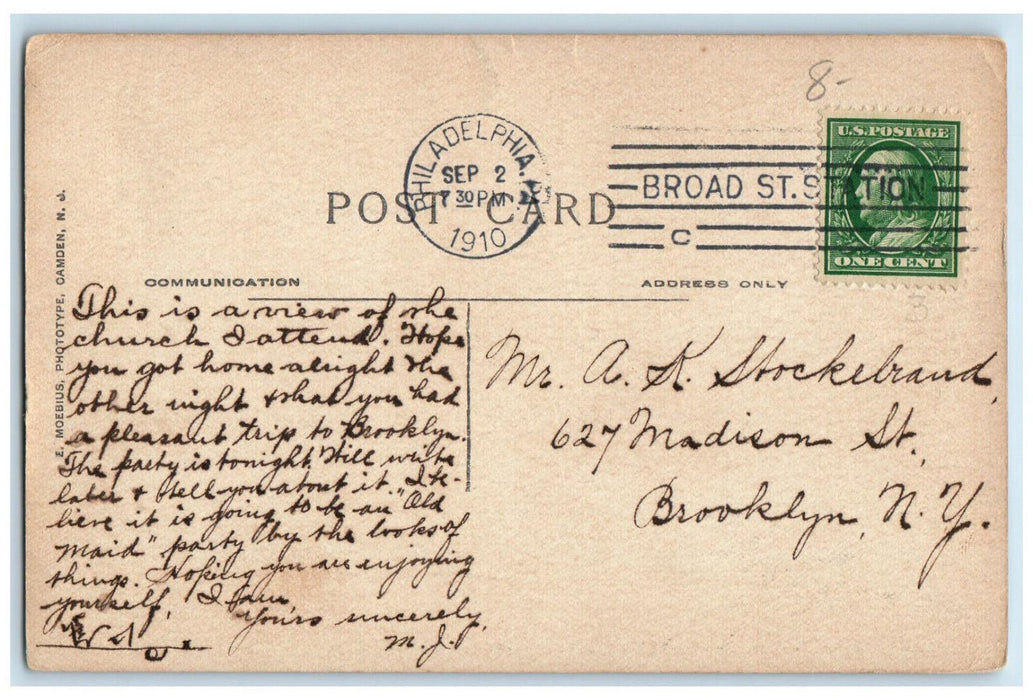 8-
U.S.POSTAGE
ONE CENT
PHILADELPHIA, PA
SEP 2
7 30 PM
1910
BROAD ST. STATION
C
POST CARD
3
COMMUNICATION
ADDRESS ONLY
E. MOEBIUS, PHOTOTYPE, CAMDEN, N. J.
This is a view of the
church I attend. Hope
you got home alright the
other night & that you had
a pleasant trip to Brooklyn.
The party is tonight. Will write
later & tell you about it. I be-
lieve it is going to be an "Old
Maid" party by the looks of
things. Hoping you are enjoying
yourself, I am
Yours sincerely,
M. J.
Mr. A. K. Stockebrand,
627 Madison St.,
Brooklyn, N. Y.